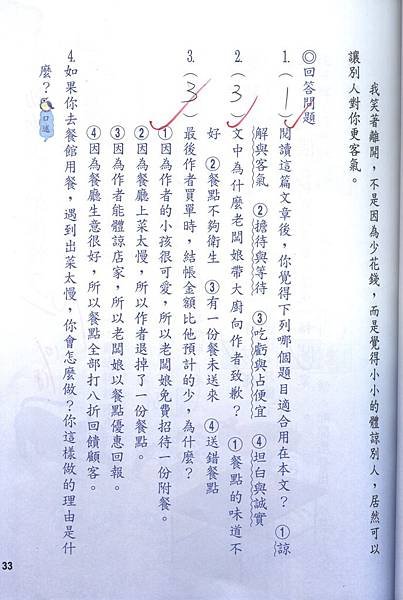 我笑著離開，不是因為少花錢，而是覺得小小的體諒別人，居然可以
讓別人對你更客氣。
◎回答問題
1.（1）閱讀這篇文章後，你覺得下列哪個題目適合用在本文？①諒
解與客氣 ②擔待與等待 ③吃虧與占便宜 ④坦白與誠實
2.（3）文中為什麼老闆娘帶大廚向作者致歉？ ①餐點的味道不
好 ②餐點不夠衛生 ③有一份餐未送來 ④送錯餐點
3.（3）最後作者買單時，結帳金額比他預計的少，為什麼？
①因為作者的小孩很可愛，所以老闆娘免費招待一份附餐。
②因為餐廳上菜太慢，所以作者退掉了一份餐點。
③因為作者能體諒店家，所以老闆娘以餐點優惠回報。
④因為餐廳生意很好，所以餐點全部打八折回饋顧客。
4.如果你去餐館用餐，遇到出菜太慢，你會怎麼做？你這樣做的理由是什
麼？
口述
33